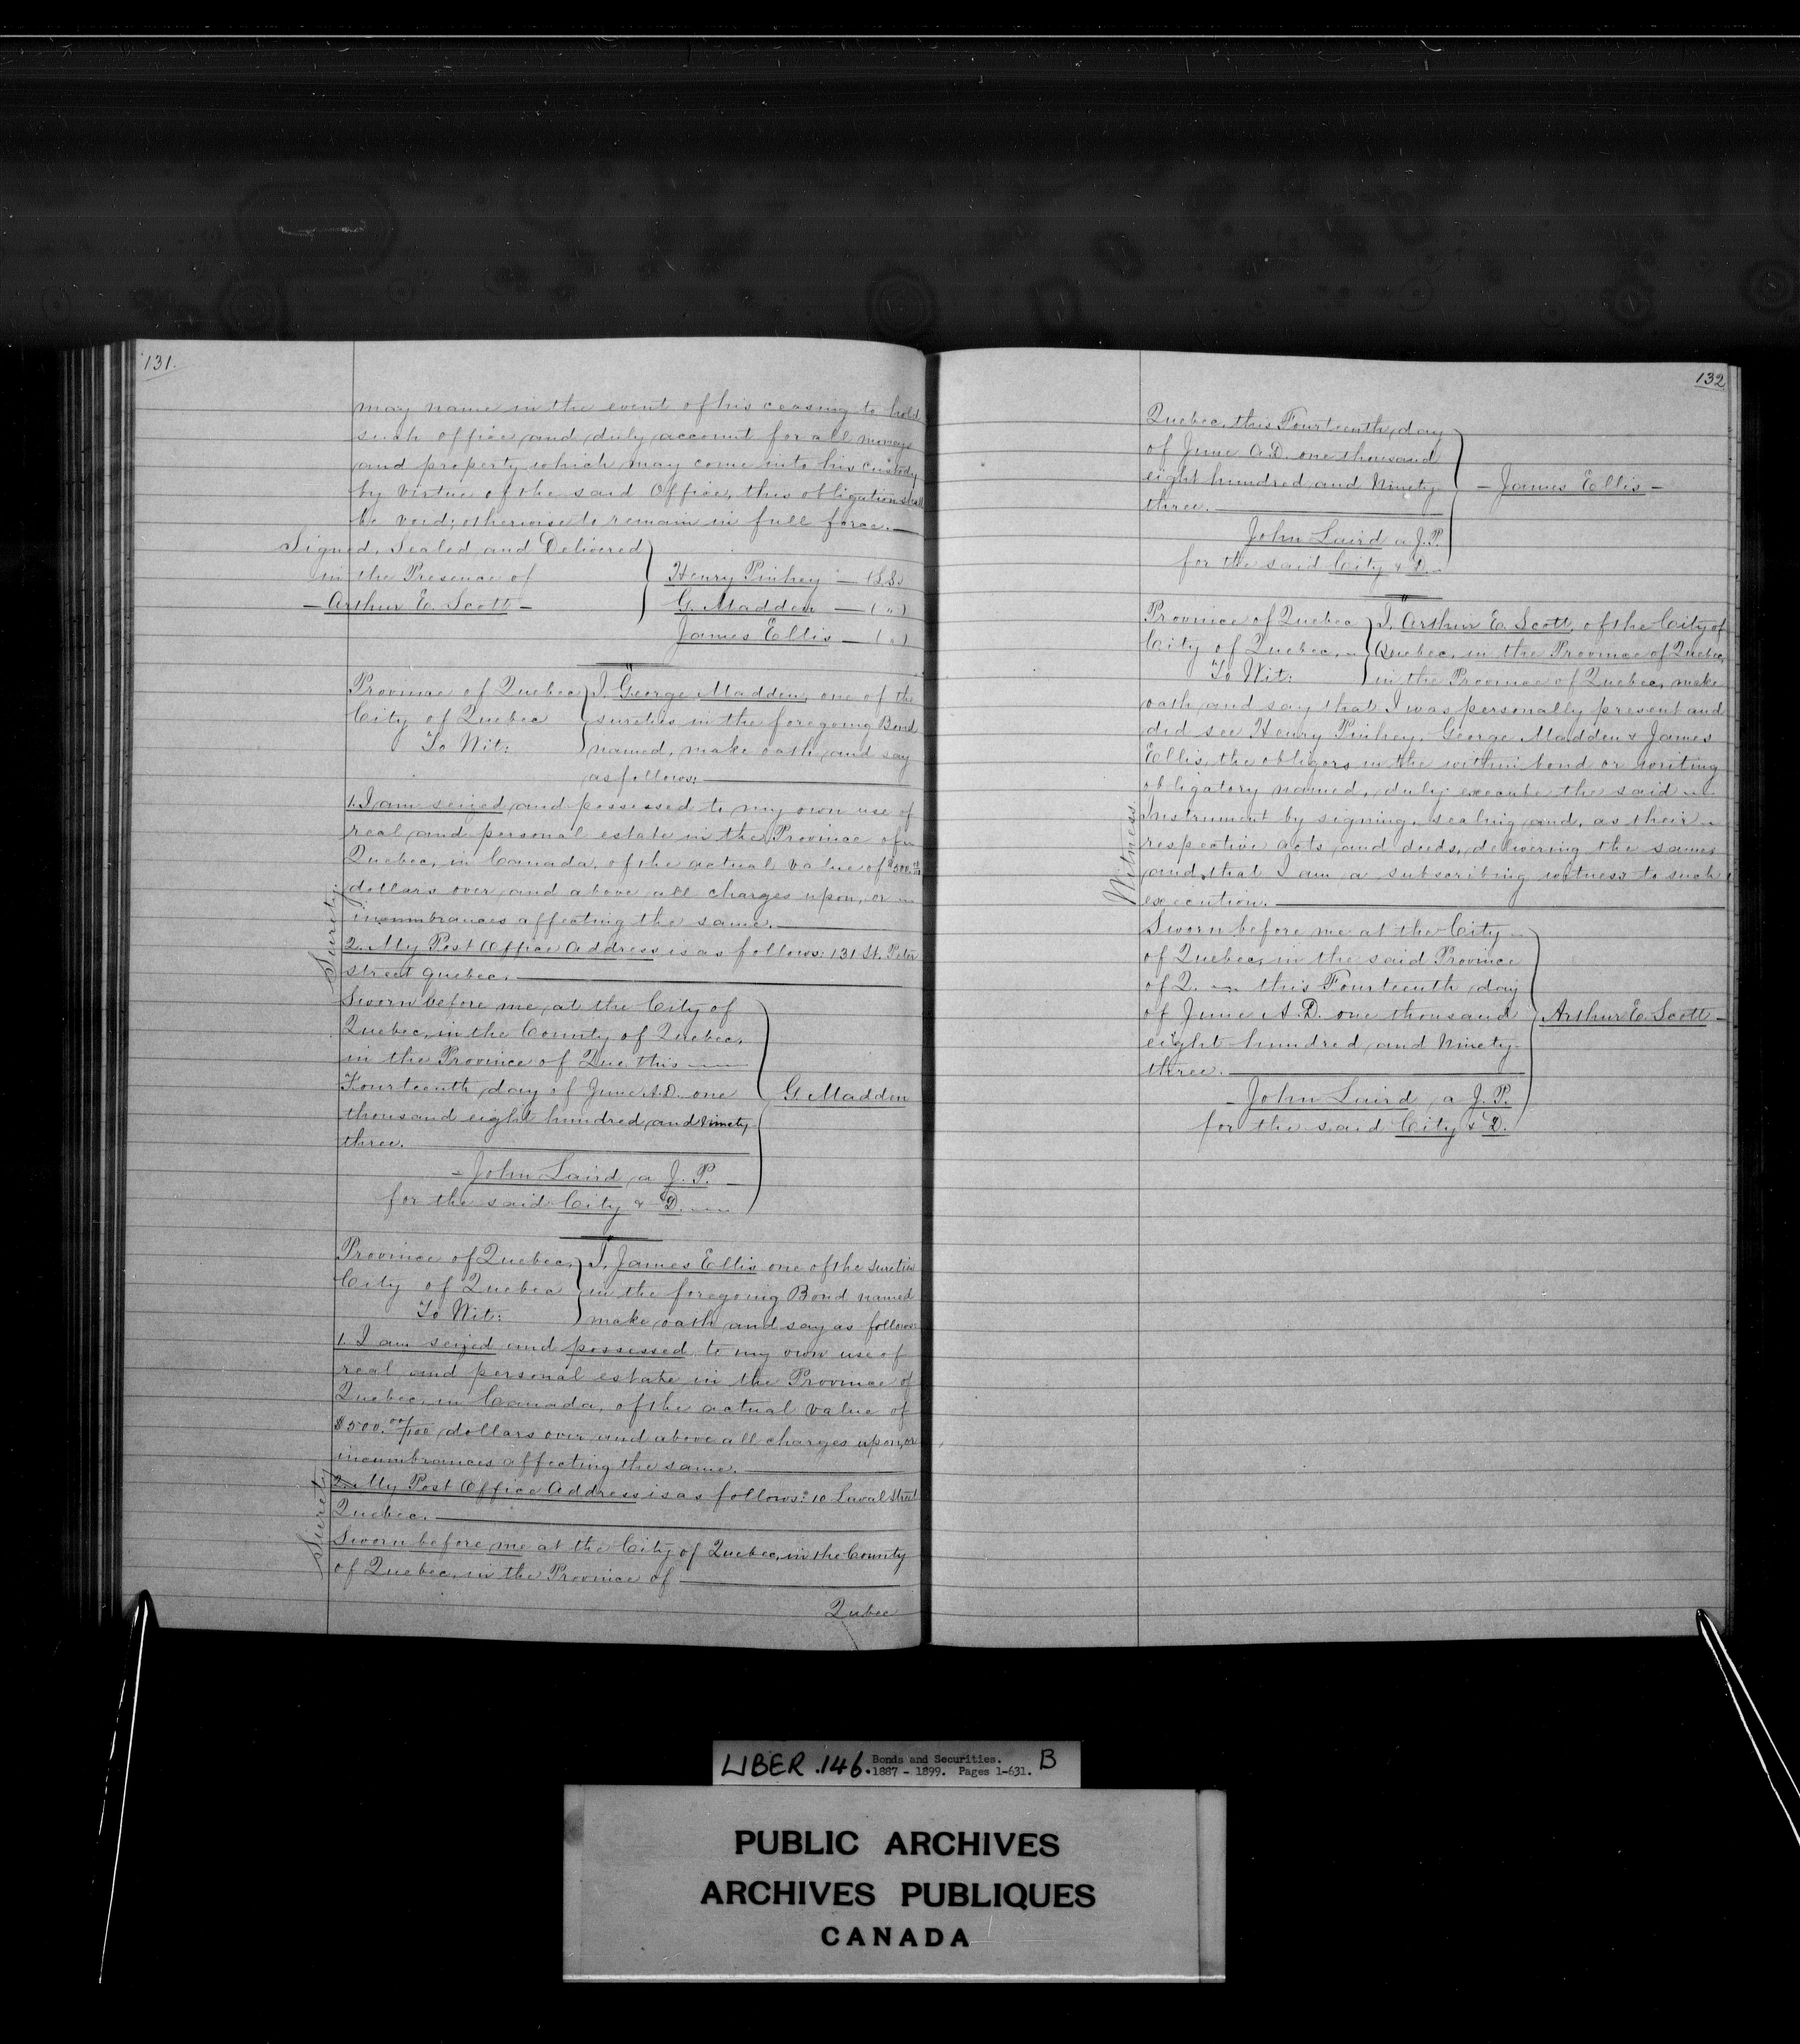 131.
may name in the event of his ceasing to hold
such office and duly account for all moneys
and property which may come into his custody
by virtue of the said Office, this obligation shall
be void; otherwise to remain in full force.
Signed, Sealed and Delivered
in the Presence of
- Arthur E. Scott -
Henry Pinhey — (L.S.)
G. Madden — ( " )
James Ellis — ( " )
Province of Quebec
City of Quebec
To Wit:
I, George Madden, one of the
sureties in the foregoing Bond
named, make oath and say
as follows:
1. I am seized and possessed to my own use of
real and personal estate in the Province of
Quebec, in Canada, of the actual value of $500.
dollars over and above all charges upon, or
incumbrances affecting the same.
Surety
2. My Post Office Address is as follows: 131 St. Peter
street Quebec.
Sworn before me, at the City of
Quebec, in the County of Quebec,
in the Province of Que. this
Fourteenth day of June A.D. one
thousand eight hundred and Ninety
three.
G. Madden
- John Laird a J. P. -
for the said City & D.
Province of Quebec,
City of Quebec
To Wit:
I, James Ellis one of the sureties
in the foregoing Bond named
make oath and say as follows:
1. I am seized and possessed to my own use of
real and personal estate in the Province of
Quebec, in Canada, of the actual value of
$500.00/100 dollars over and above all charges upon, or
incumbrances affecting the same.
Surety
2. My Post Office Address is as follows: 10 Laval Street
Quebec.
Sworn before me at the City of Quebec, in the County
of Quebec, in the Province of
Qubec
132
Quebec, this Fourteenth day
of June A.D. one thousand
eight hundred and Ninety
three.
- James Ellis -
John Laird a J.P.
for the said City & D.
Province of Quebec
City of Quebec,
To Wit:
I, Arthur E. Scott, of the City of
Quebec, in the Province of Quebec,
in the Province of Quebec, make
oath and say that I was personally present and
did see Henry Pinhey, George Madden & James
Ellis, the obligors in the within bond or writing
obligatory named, duly execute the said
Instrument by signing, sealing and, as their
respective acts and deeds, delivering the same
and that I am a subscribing witness to such
execution.
Witness
Sworn before me at the City
of Quebec, in the said Province
of Q. this Fourteenth day
of June A.D. one thousand
eight hundred and Ninety-
three.
Arthur E. Scott -
- John Laird, a J. P.
for the said City & D.
LIBER .146. Bonds and Securities. B
1887 - 1899. Pages 1-631.
PUBLIC ARCHIVES
ARCHIVES PUBLIQUES
CANADA